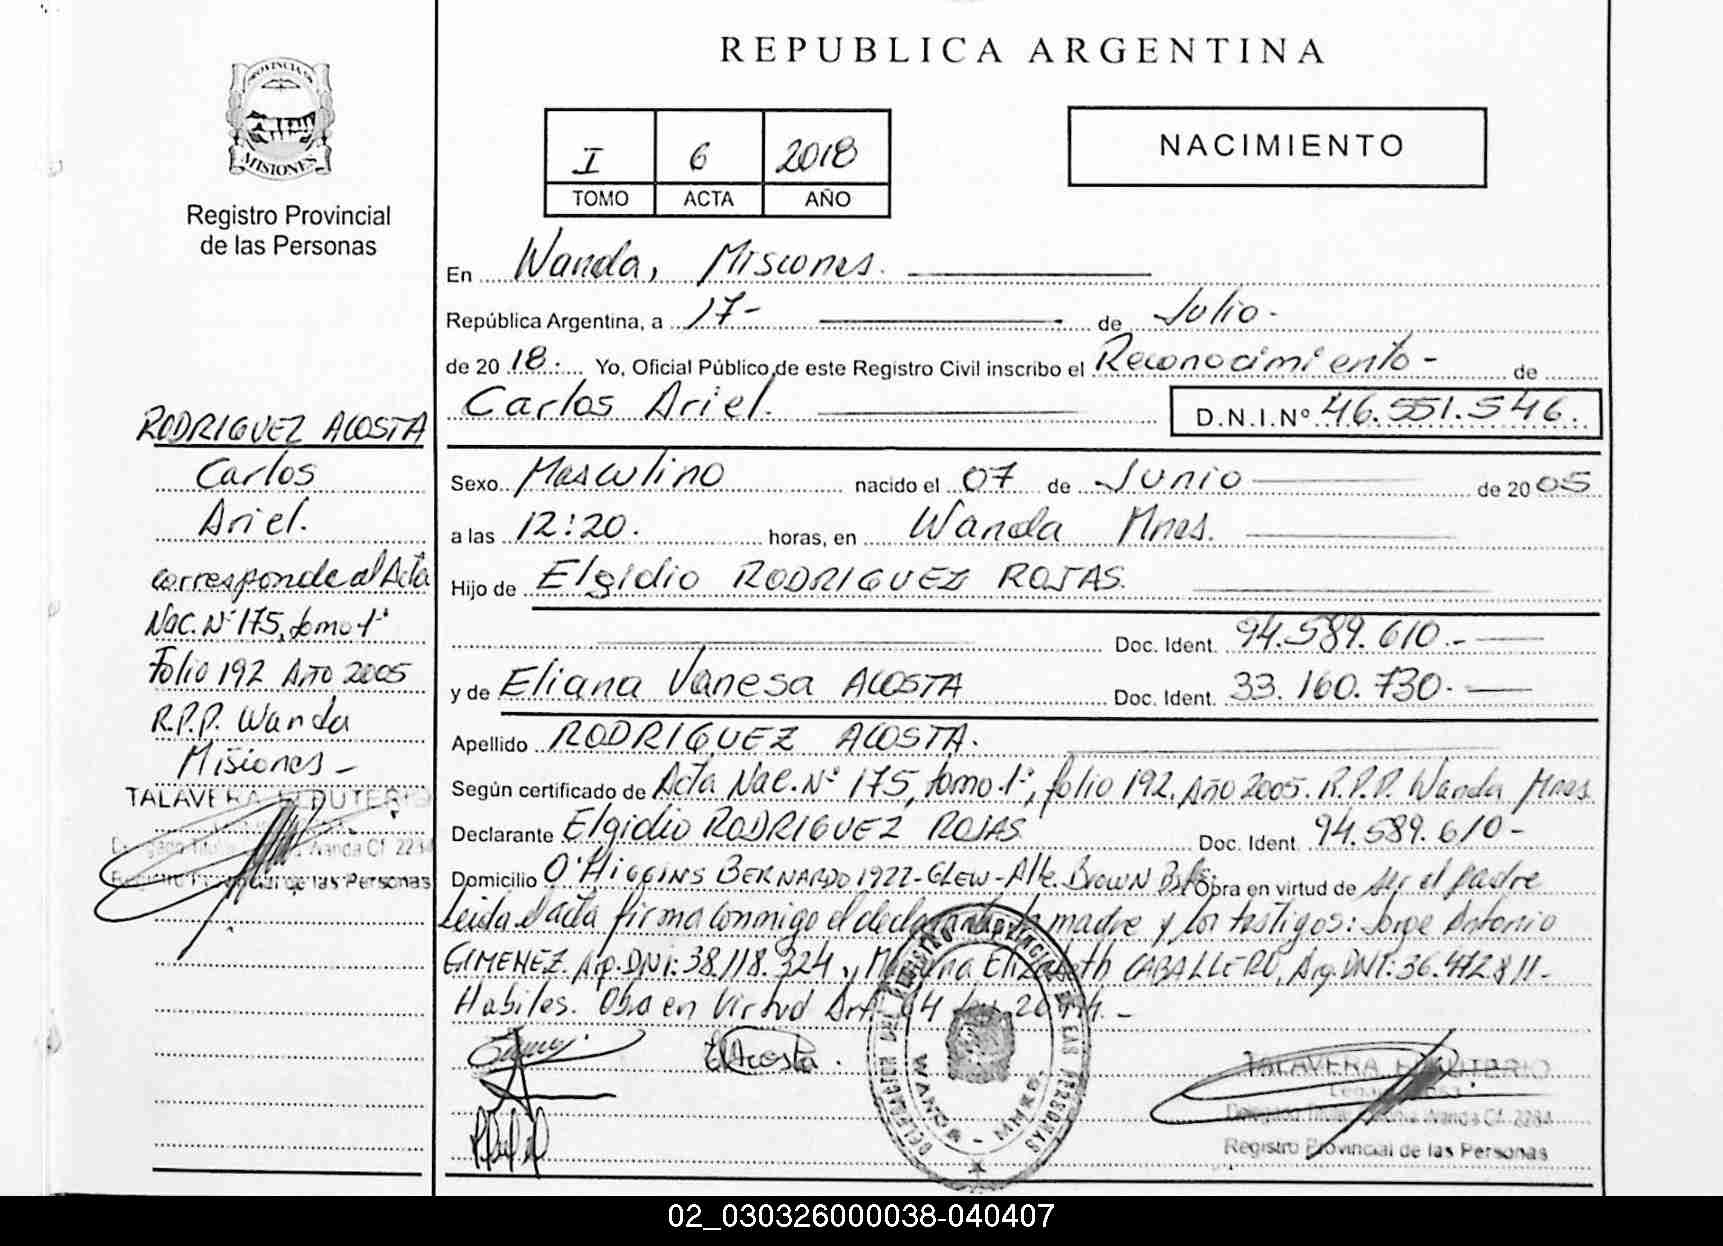 REPUBLICA ARGENTINA
PROVINCIA DE
MISIONES
Registro Provincial
de las Personas
I 6 2018
TOMO ACTA AÑO
NACIMIENTO
En Wanda, Misiones.
República Argentina, a 17- de Julio-
de 2018.- Yo, Oficial Público de este Registro Civil inscribo el Reconocimiento - de
Carlos Ariel. D.N.I.Nº 46.551.546.
Sexo Masculino nacido el 07 de Junio de 2005
a las 12:20. horas, en Wanda Mnes.
Hijo de Elgidio RODRIGUEZ ROJAS.
Doc. Ident. 94.589.610.-
y de Eliana Vanesa ACOSTA Doc. Ident. 33.160.730.-
Apellido RODRIGUEZ ACOSTA.
Según certificado de Acta Nac. Nº 175, tomo 1º, folio 192. Año 2005. R.P.P. Wanda Mnes.
Declarante Elgidio RODRIGUEZ ROJAS Doc. Ident. 94.589.610-
Domicilio O'HIGGINS BERNARDO 1922-GLEW-Alte. BROWN Bs As Obra en virtud de ser el padre
Leida el acta firma conmigo el declarante, la madre y los testigos: Jorge Antonio
GIMENEZ. Arg. DNI: 38.118.324., Elizabeth CABALLERO, Arg. DNI: 36.472.811-
Habiles. Obra en Virtud Art.
EAcosta.
DELEGACION DEL REGISTRO PROVINCIAL DE LAS PERSONAS
WANDA - MNES.
TALAVERA ELEUTERIO
Delegado Titular Wanda Cf. 2284
Registro Provincial de las Personas
RODRIGUEZ ACOSTA
Carlos
Ariel.
corresponde al Acta
Nac. Nº 175, tomo 1º
Folio 192 Año 2005
R.P.P. Wanda
Misiones -
TALAVERA ELEUTERIO
Delegado Titular Wanda Cf. 2284
Registro Provincial de las Personas
02_030326000038-040407